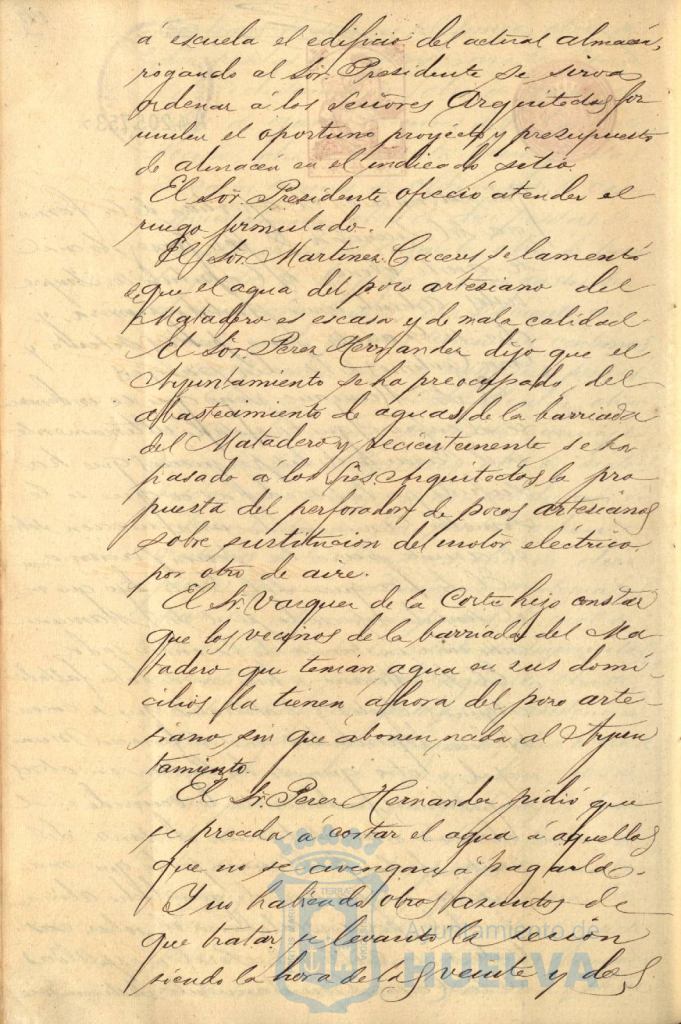 á escuela el edificio del actual almacén,
rogando al Sor. Presidente se sirva
ordenar á los Señores Arquitectos for
mulen el oportuno proyecto y presupuesto
de almacén en el indicado sitio.
El Sor. Presidente ofreció atender el
ruego formulado.
El Sor. Martinez Caceres se lamentó
de que el agua del pozo artesiano del
Matadero es escasa y de mala calidad.
El Sor. Perez Hernandez dijo que el
Ayuntamiento se ha preocupado del
abastecimiento de aguas de la barriada
del Matadero y recientemente se ha
pasado á los Sres. Arquitectos la pro
puesta del perforador de pozos artesianos
sobre sustitucion del motor eléctrico
por otro de aire.
El Sr. Vazquez de la Corte hizo constar
que los vecinos de la barriada del Ma-
tadero que tenian agua en sus domi-
cilios la tienen ahora del pozo arte-
siano, sin que abonen nada al Ayun
tamiento.
El Sr. Perez Hernandez pidió que
se proceda á cortar el agua á aquellos
que no se avengan á pagarla.
Y no habiendo otros asuntos de
que tratar se levantó la sesion
siendo la hora de las veinte y dos
Ayuntamiento de
HUELVA